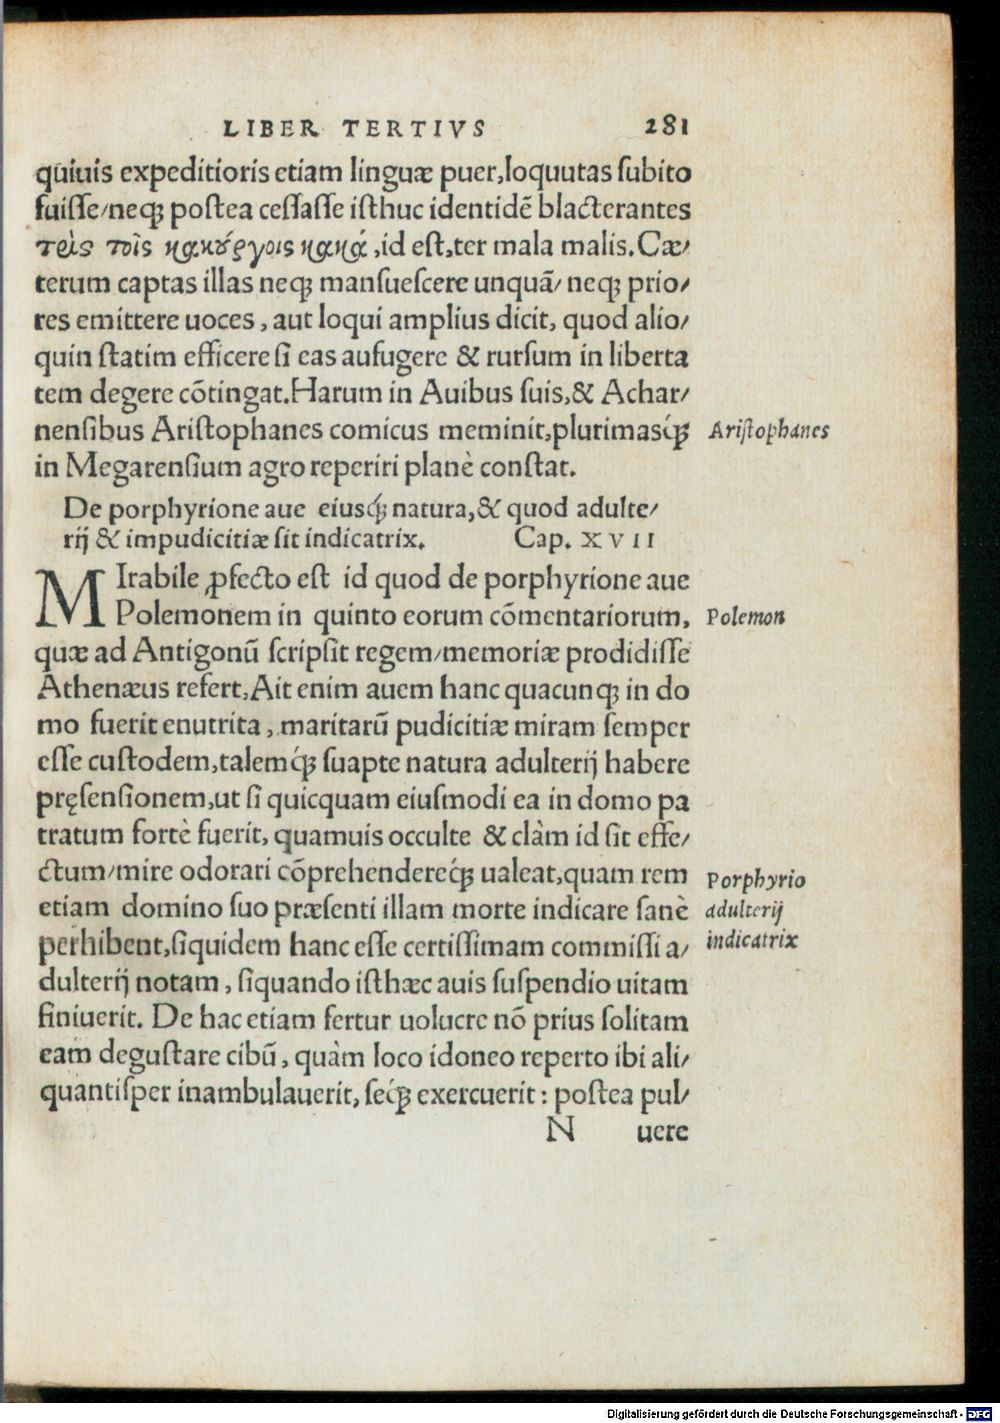 LIBER TERTIVS 281
quiuis expeditioris etiam linguæ puer, loquutas ſubito
fuiſſe/neqꝫ poſtea ceſſaſſe iſthuc identidē blacterantes
τρὶς τοῖς κακούργοις κακά, id eſt, ter mala malis. Cæ/
terum captas illas neqꝫ manſueſcere unquā/ neqꝫ prio/
res emittere uoces, aut loqui amplius dicit, quod alio/
quin ſtatim efficere ſi eas aufugere & rurſum in liberta
tem degere cōtingat. Harum in Auibus ſuis, & Achar/
nenſibus Ariſtophanes comicus meminit, plurimasq́ꝫ
Ariſtophanes
in Megarenſium agro reperiri planè conſtat.
De porphyrione aue eiusq́ꝫ natura, & quod adulte/
rij & impudicitiæ ſit indicatrix. Cap. XVII
MIrabile ꝓfecto eſt id quod de porphyrione aue
Polemonem in quinto eorum cōmentariorum,
Polemon
quæ ad Antigonū ſcripſit regem/memoriæ prodidiſſe
Athenæus refert, Ait enim auem hanc quacunqꝫ in do
mo fuerit enutrita, maritarū pudicitiæ miram ſemper
eſſe cuſtodem, talemq́ꝫ ſuapte natura adulterij habere
pręſenſionem, ut ſi quicquam eiuſmodi ea in domo pa
tratum fortè fuerit, quamuis occulte & clàm id ſit effe/
ctum/mire odorari cōprehendereq́ꝫ ualeat, quam rem
etiam domino ſuo præſenti illam morte indicare ſanè
Porphyrio
adulterij
indicatrix
perhibent, ſiquidem hanc eſſe certiſſimam commiſſi a/
dulterij notam, ſiquando iſthæc auis ſuſpendio uitam
finiuerit. De hac etiam fertur uolucre nō prius ſolitam
eam deguſtare cibū, quàm loco idoneo reperto ibi ali/
quantiſper inambulauerit, ſeq́ꝫ exercuerit: poſtea pul/
N uere
Digitalisierung gefördert durch die Deutsche Forschungsgemeinschaft - DFG